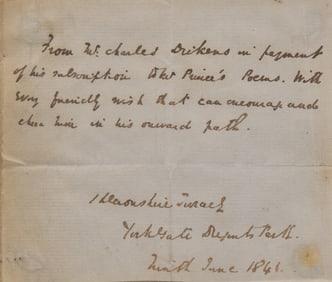 From Mr. Charles Dickens in payment
of his subscription to Mr Prince's Poems. With
every friendly wish that can encourage and
cheer him in his onward path.
1 Devonshire Terrace
York Gate Regents Park.
Ninth June 1841.